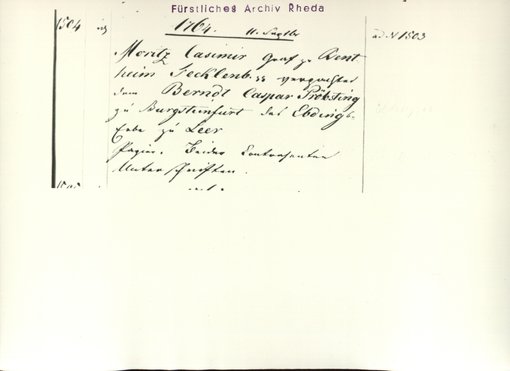 Fürstliches Archiv Rheda
1504
1764. 11. Septbr
ad N 1503
Moritz Casimir Graf zu Bent
heim Tecklenb. verpachtet
dem Berndt Caspar Pröbsting
zu Burgsteinfurt das Ebding
Erbe zu Leer
Papier. Beider Contrahenten
Unterschriften.